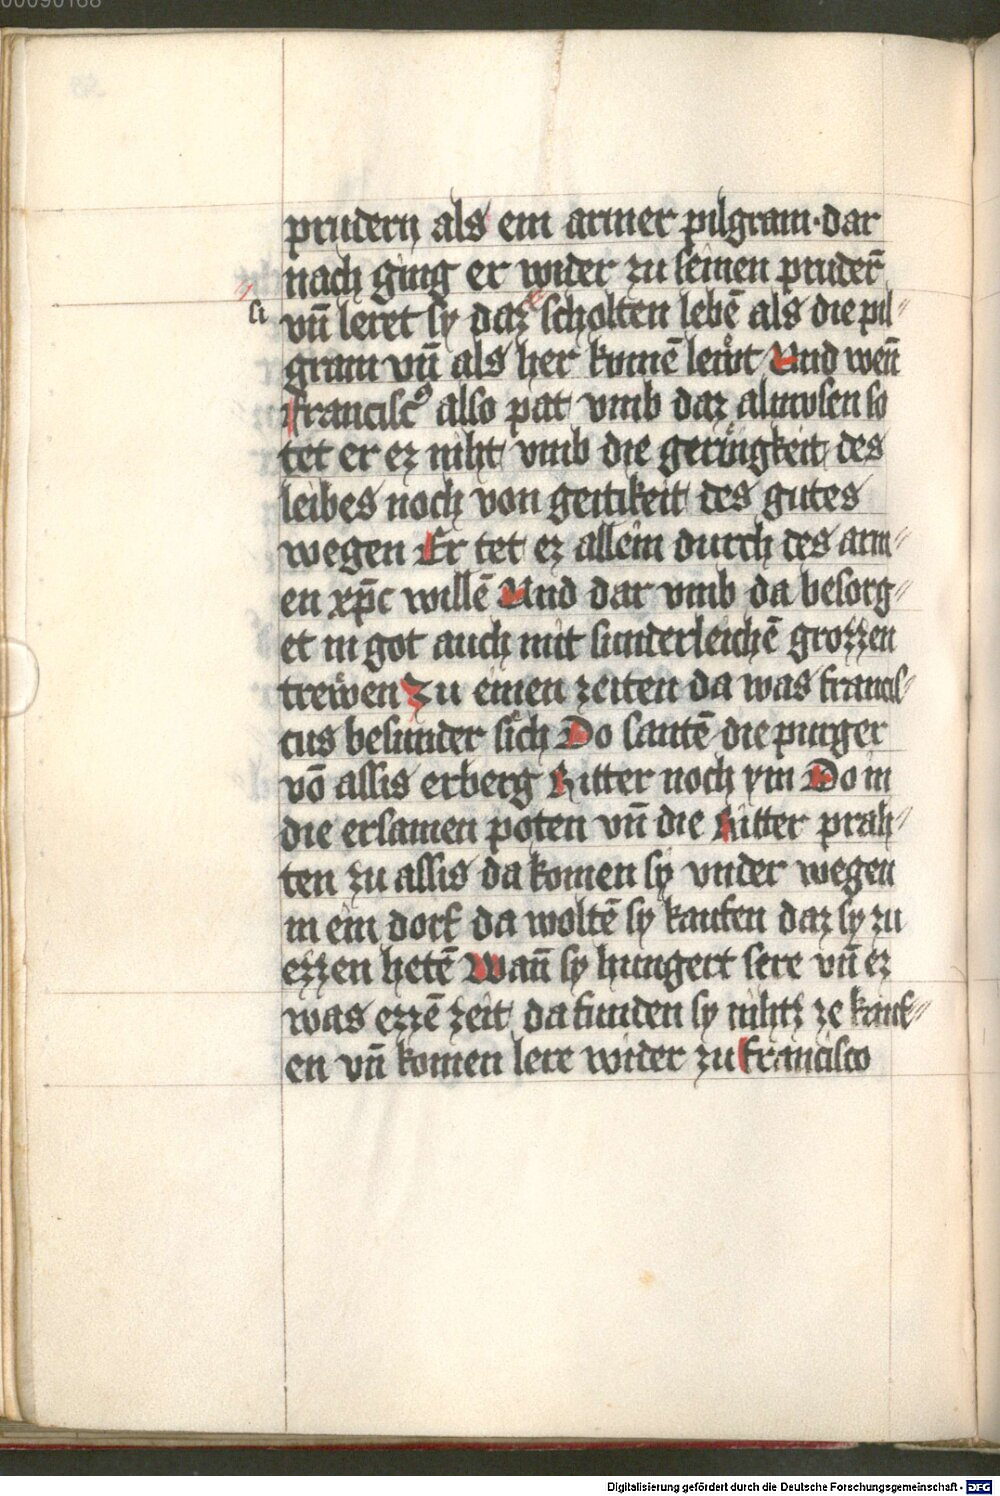 00090168
prudern als ein armer pilgram · dar
nach ging er wider zu seinen pruder̄
si
vn̄ leret sy daz scholten lebē als die pil⸗
gram vn̄ als her kumē leẅt Und wen̄
Franciscꝰ also pat vmb daz almusen so
tet er ez niht vmb die geringkeit des
leibes noch von geitikeit des gutes
wegen Er tet ez allein durch des arm⸗
en xp̄c willē Und dar vmb da besorg⸗
et in got auch mit sunderleichē grozzen
treẅen Zu einen zeiten da was francis⸗
cus besunder sich Do santē die purger
vō assis erberg Ritter noch ym Do in
die ersamen poten vn̄ die Ritter prah⸗
ten zu assis da komen sy vnder wegen
in ein dorf da woltē sy kaufen daz sy zu
ezzen hetē Wan̄ sy hungert sere vn̄ ez
was ezzē zeit da funden sy nihtz ze kauf⸗
en vn̄ komen lere wider zu Francisco
Digitalisierung gefördert durch die Deutsche Forschungsgemeinschaft - DFG